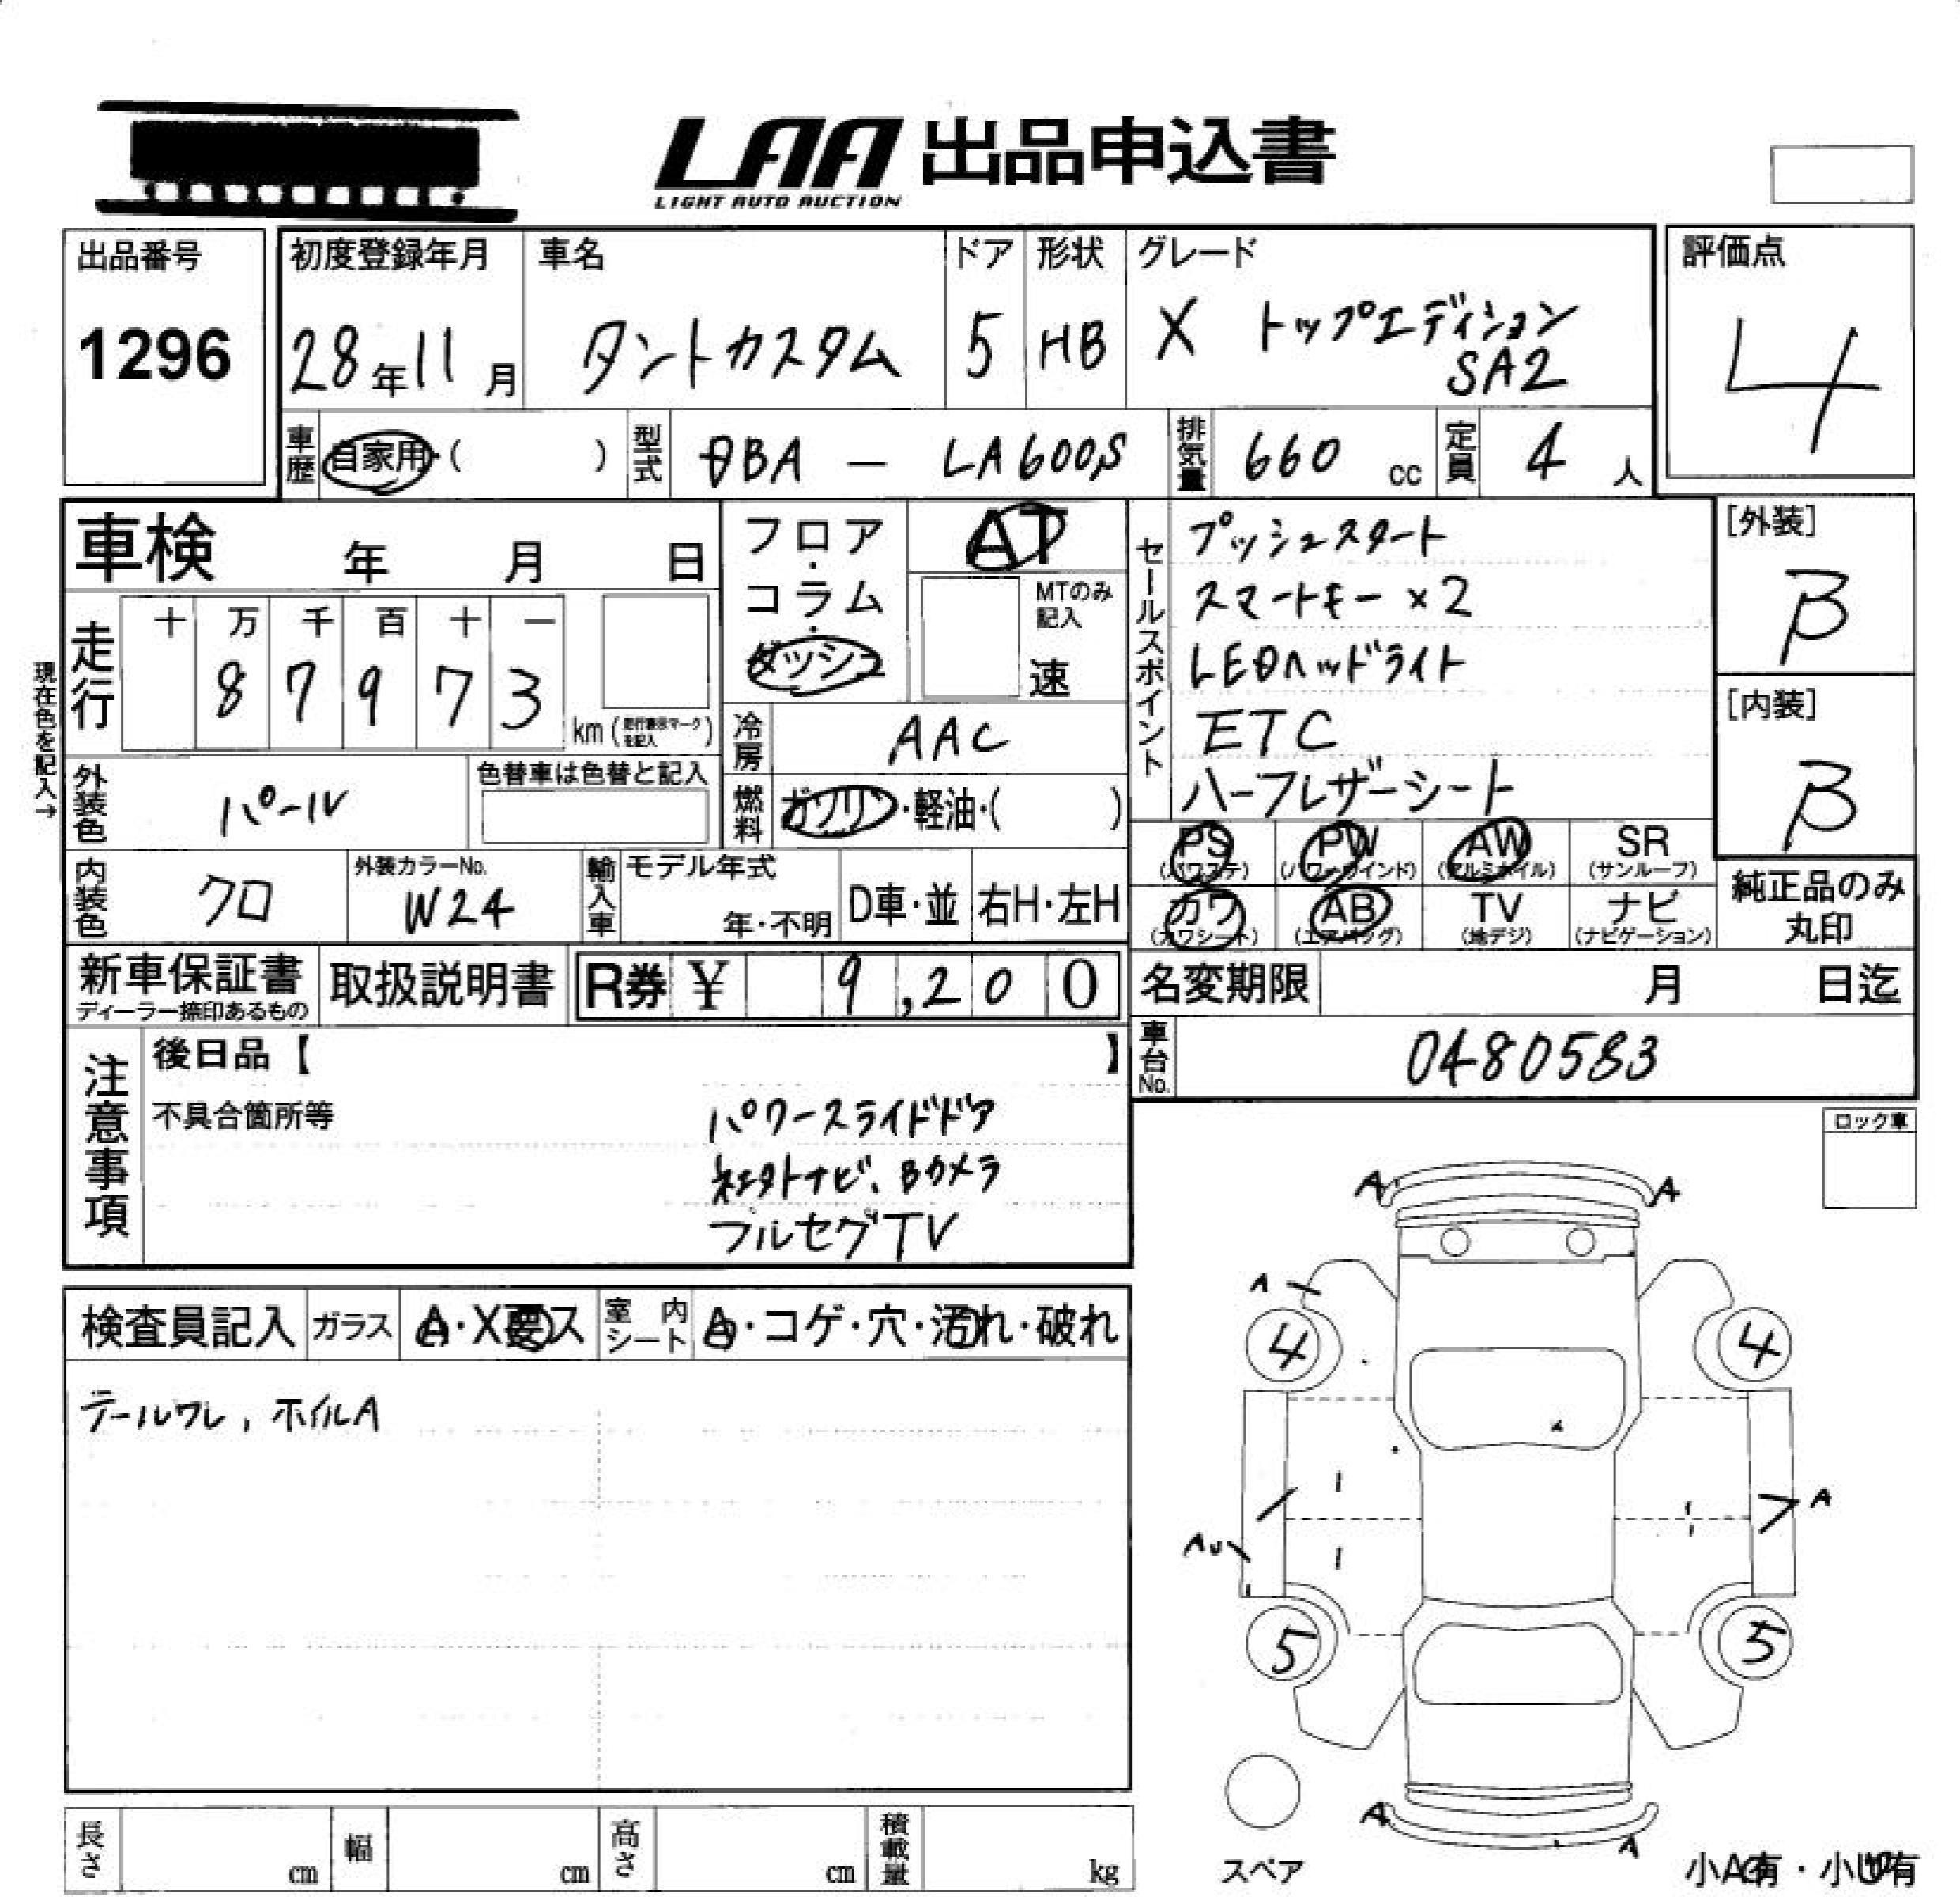 LAA 出品申込書
LIGHT AUTO AUCTION
出品番号
1296
初度登録年月
28年11月
車名
タントカスタム
ドア
5
形状
HB
グレード
X トップエディション
SA2
評価点
4
車歴 自家用・( )
型式 DBA － LA600S
排気量 660 cc
定員 4 人
車検 年 月 日
走行 十 万 千 百 十 一
8 7 9 7 3 km (走行表示マークを記入)
現在色を記入→
外装色 パール
色替車は色替と記入
内装色 クロ
外装カラーNo.
W24
フロア・コラム・ダッシュ
AT
MTのみ記入
速
冷房 AAC
燃料 ガソリン・軽油・( )
輸入車
モデル年式
年・不明
D車・並
右H・左H
セールスポイント
プッシュスタート
スマートキー×2
LEDヘッドライト
ETC
ハーフレザーシート
[外装]
β
[内装]
β
PS (パワステ)
PW (パワーウインド)
AW (アルミホイル)
SR (サンルーフ)
カワ (カワシート)
AB (エアバッグ)
TV (地デジ)
ナビ (ナビゲーション)
純正品のみ
丸印
新車保証書
ディーラー捺印あるもの
取扱説明書
R券 ¥ 9,200
名変期限 月 日迄
車台No. 0480583
注意事項
後日品【 】
不具合箇所等
パワースライドドア
社外ナビ、Bカメラ
フルセグTV
ロック車
検査員記入
ガラス A・X要ス
室内シート A・コゲ・穴・汚れ・破れ
テールワレ, ホイルA
A A
A
4 4
A
AU
5 5
A A
スペア
小A有・小U有
長さ cm
幅 cm
高さ cm
積載量 kg